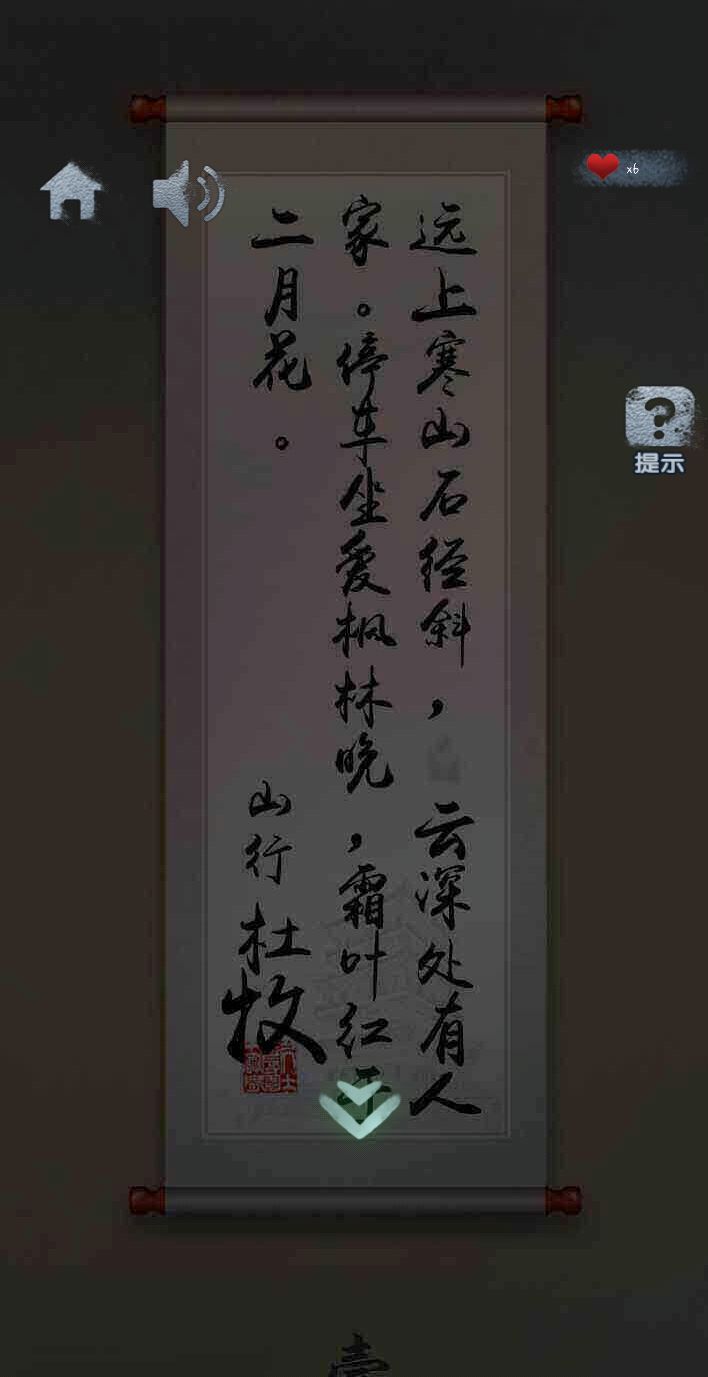 x6
提示
远上寒山石径斜，云深处有人
家。停车坐爱枫林晚，霜叶红于
二月花。
山行
杜牧
壹